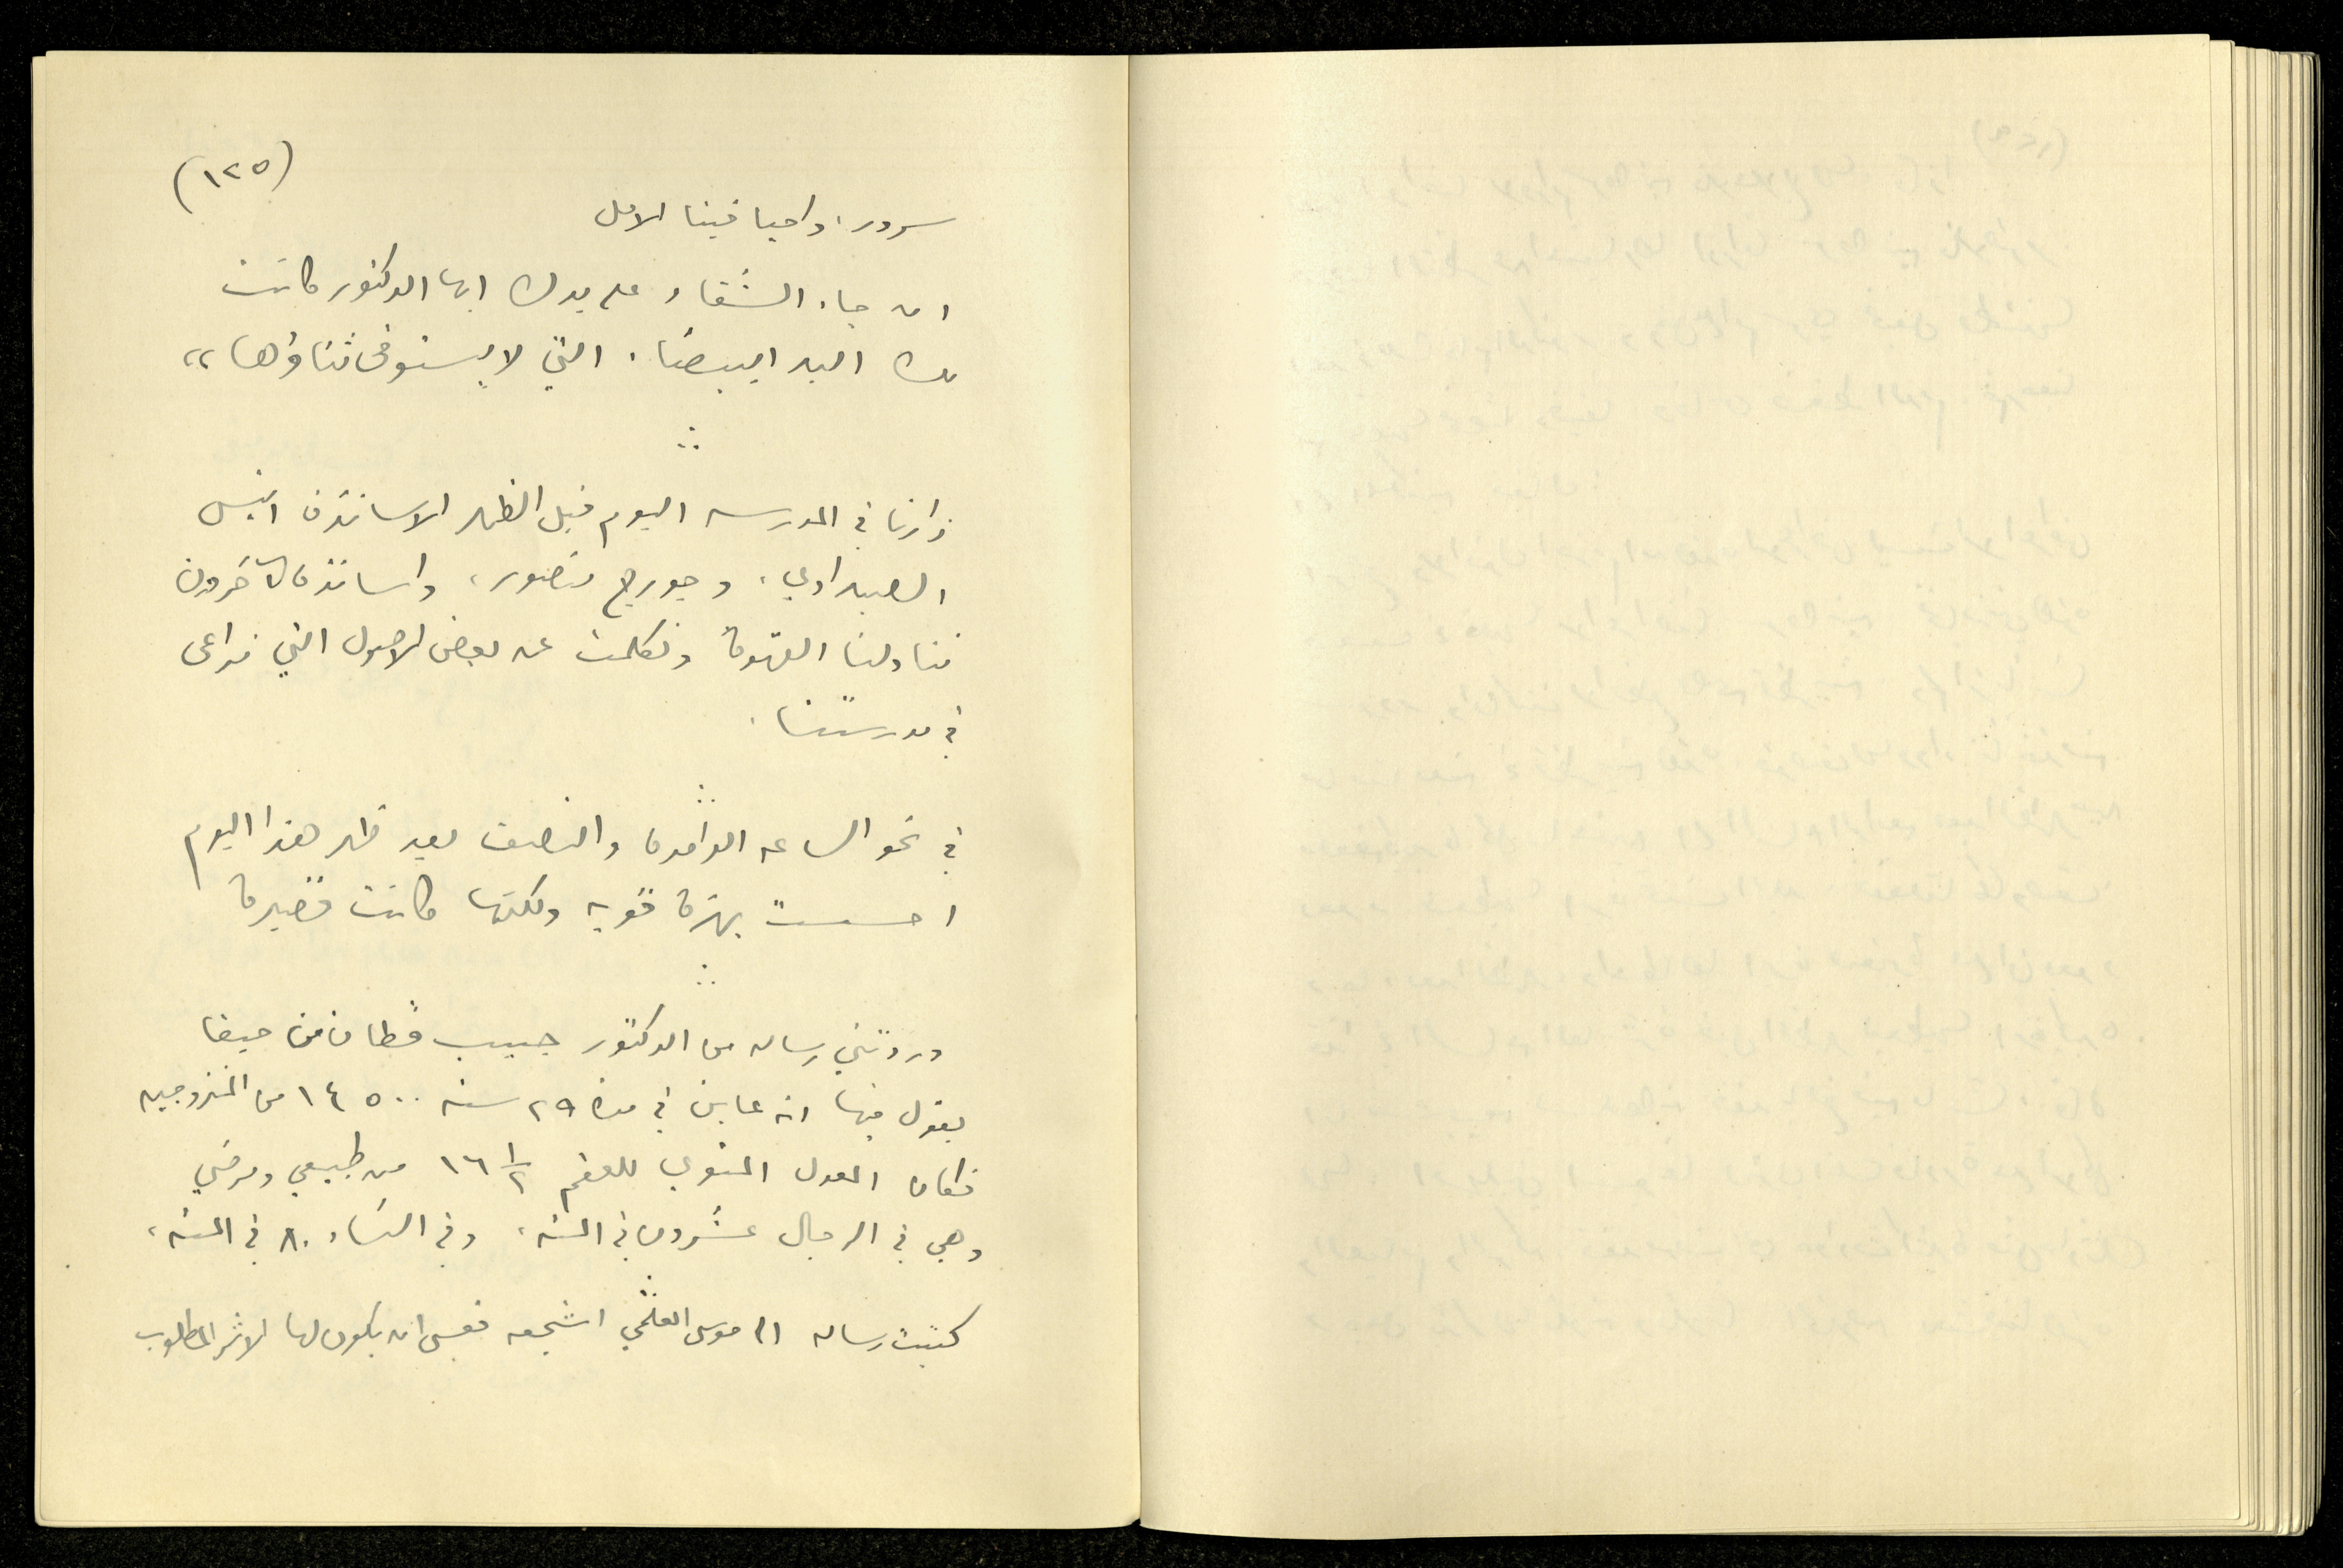 (١٢٥)
سرور، واحيا فينا الامل
ان جاء الشفاء على يدك ايها الدكتور كانت
لك اليد البيضاء التي لا يستوفى ثناؤها »
زارنا في المدرسه اليوم قبل الظهر الاساتذة انيس
الصيداوي، وجورج منصور، واساتذة آخرون
فتناولنا القهوة وتكلمت عن بعض الاصول التي نراعى
في مدرستنا.
في نحو الساعه الواحدة والنصف بعد ظهر هذا اليوم
احسست بهزة قويه ولكنها كانت قصيرة
وردتني رساله من الدكتور حبيب قطان من حيفا
يقول فيها انه عاين في مدة ٢٩ سنه ١٤٥٠٠ من المتزوجين
فكان المعدل المئوي للعقم ١٦ ١/٢ من طبيعي ومرضي
وهي في الرجال عشرون في المئه، وفي النساء ٨٠ في المئه،
كتبت رساله الى موسى العلمي اشجعه فعسى ان يكون لها الاثر المطلوب